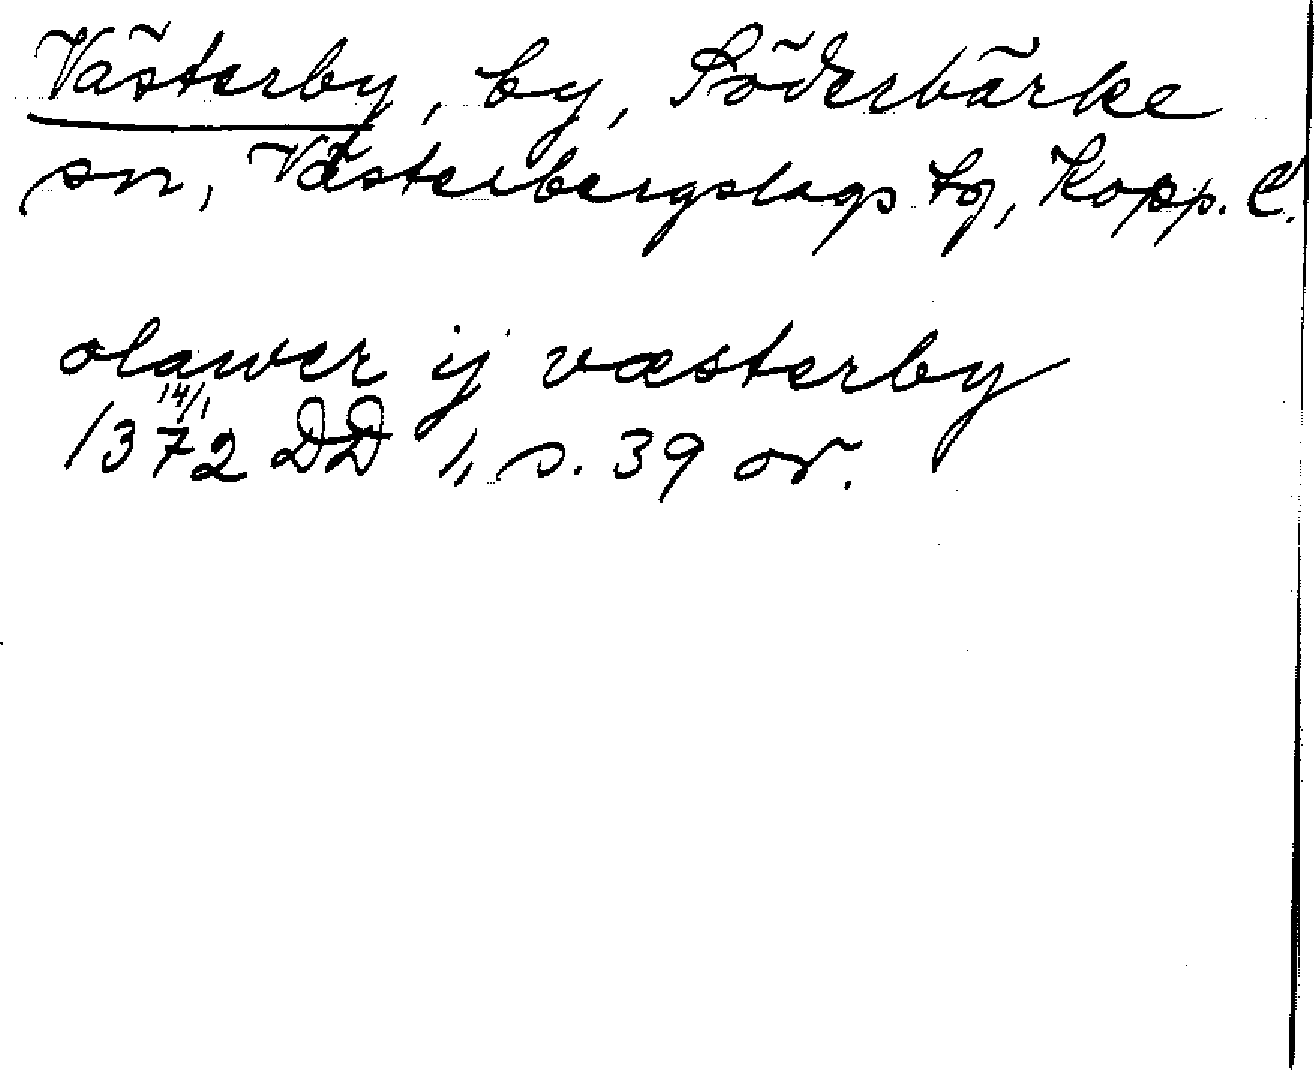 Västerby, by, Söderbärke
sn, Västerbergslags tg, Kopp. l.
olawer ij væsterby
14/1
1372 DD 1, s. 39 or.